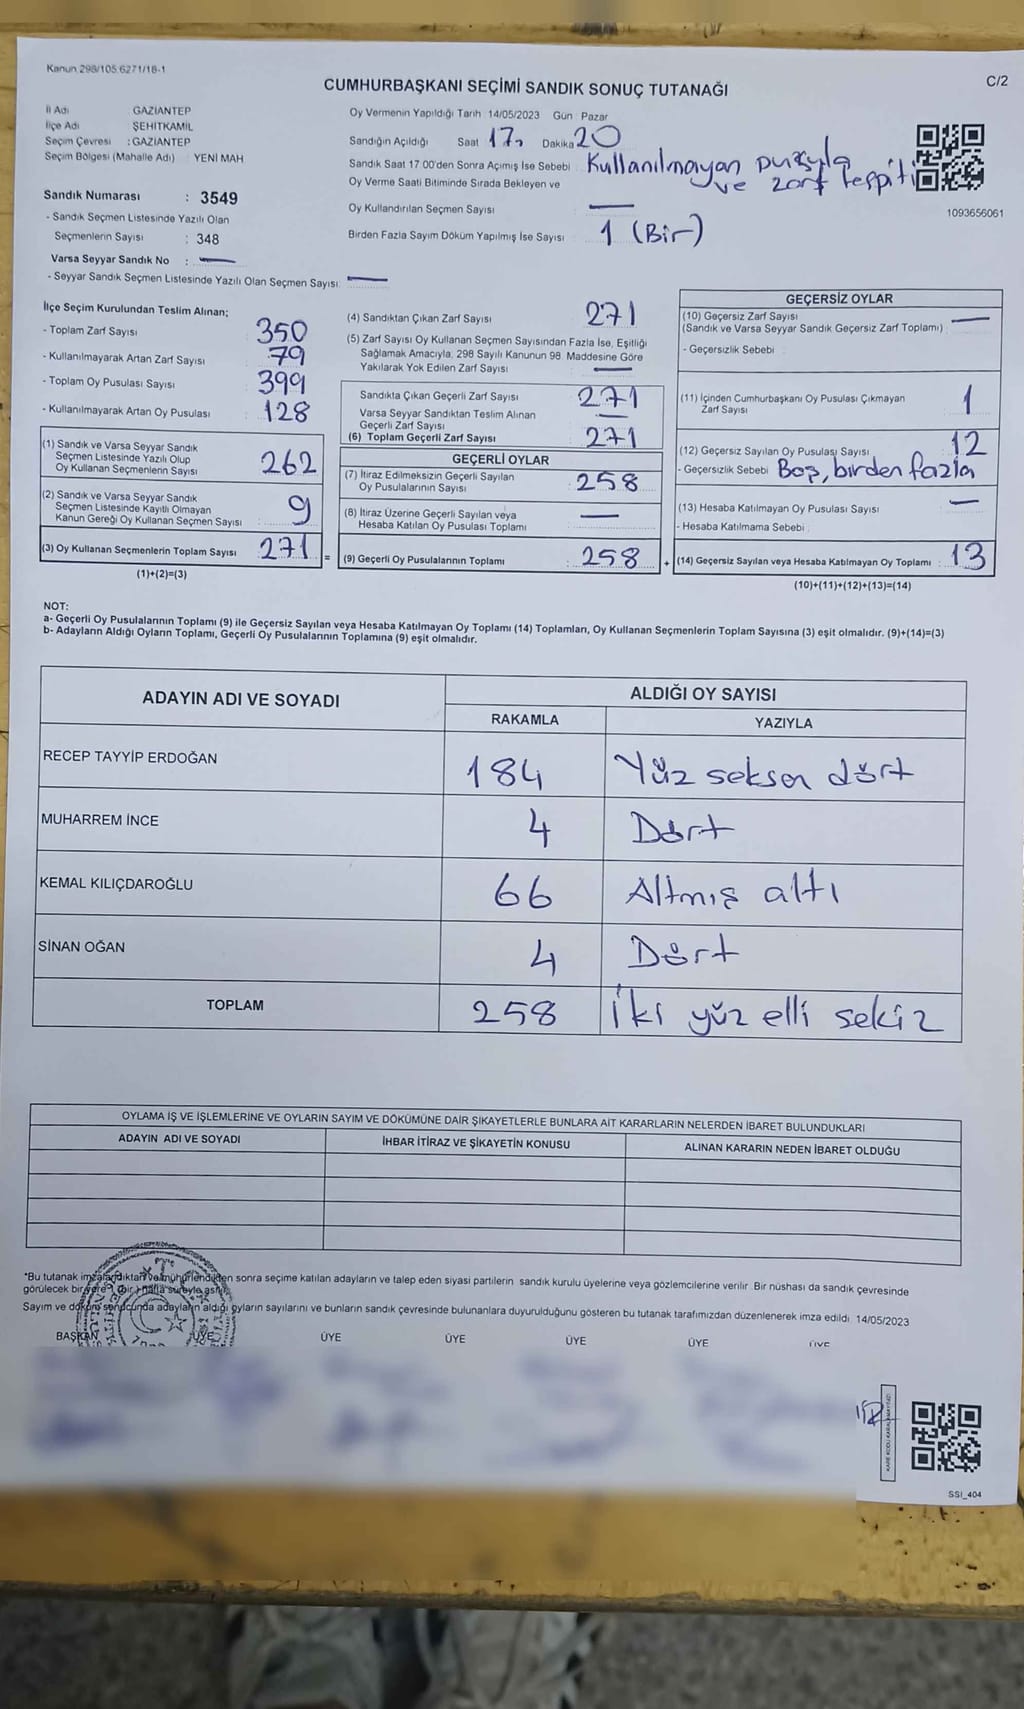 Kanun 298/105 6271/18-1
C/2
CUMHURBAŞKANI SEÇİMİ SANDIK SONUÇ TUTANAĞI
İl Adı GAZİANTEP
İlçe Adı ŞEHİTKAMİL
Seçim Çevresi : GAZİANTEP
Seçim Bölgesi (Mahalle Adı) YENİ MAH
Sandık Numarası : 3549
- Sandık Seçmen Listesinde Yazılı Olan
Seçmenlerin Sayısı : 348
Varsa Seyyar Sandık No :
- Seyyar Sandık Seçmen Listesinde Yazılı Olan Seçmen Sayısı:
Oy Vermenin Yapıldığı Tarih 14/05/2023 Gün Pazar
Sandığın Açıldığı Saat 17 Dakika 20
Sandık Saat 17 00'den Sonra Açımış İse Sebebi Kullanılmayan pusula
ve zarf tespiti
Oy Verme Saati Bitiminde Sırada Bekleyen ve
Oy Kullandırılan Seçmen Sayısı
Birden Fazla Sayım Döküm Yapılmış İse Sayısı 1 (Bir)
1093656061
İlçe Seçim Kurulundan Teslim Alınan;
- Toplam Zarf Sayısı 350
- Kullanılmayarak Artan Zarf Sayısı 79
- Toplam Oy Pusulası Sayısı 399
- Kullanılmayarak Artan Oy Pusulası 128
(1) Sandık ve Varsa Seyyar Sandık
Seçmen Listesinde Yazılı Olup
Oy Kullanan Seçmenlerin Sayısı 262
(2) Sandık ve Varsa Seyyar Sandık
Seçmen Listesinde Kayıtlı Olmayan
Kanun Gereği Oy Kullanan Seçmen Sayısı 9
(3) Oy Kullanan Seçmenlerin Toplam Sayısı 271 =
(1)+(2)=(3)
(4) Sandıktan Çıkan Zarf Sayısı 271
(5) Zarf Sayısı Oy Kullanan Seçmen Sayısından Fazla İse, Eşitliği
Sağlamak Amacıyla, 298 Sayılı Kanunun 98 Maddesine Göre
Yakılarak Yok Edilen Zarf Sayısı
Sandıkta Çıkan Geçerli Zarf Sayısı 271
Varsa Seyyar Sandıktan Teslim Alınan
Geçerli Zarf Sayısı
(6) Toplam Geçerli Zarf Sayısı 271
GEÇERLİ OYLAR
(7) İtiraz Edilmeksizin Geçerli Sayılan
Oy Pusulalarının Sayısı 258
(8) İtiraz Üzerine Geçerli Sayılan veya
Hesaba Katılan Oy Pusulası Toplamı
(9) Geçerli Oy Pusulalarının Toplamı : 258 +
GEÇERSİZ OYLAR
(10) Geçersiz Zarf Sayısı
(Sandık ve Varsa Seyyar Sandık Geçersiz Zarf Toplamı)
- Geçersizlik Sebebi
(11) İçinden Cumhurbaşkanı Oy Pusulası Çıkmayan
Zarf Sayısı 1
(12) Geçersiz Sayılan Oy Pusulası Sayısı 12
- Geçersizlik Sebebi Boş, birden fazla
(13) Hesaba Katılmayan Oy Pusulası Sayısı
- Hesaba Katılmama Sebebi
(14) Geçersiz Sayılan veya Hesaba Katılmayan Oy Toplamı : 13
(10)+(11)+(12)+(13)=(14)
NOT:
a- Geçerli Oy Pusulalarının Toplamı (9) ile Geçersiz Sayılan veya Hesaba Katılmayan Oy Toplamı (14) Toplamları, Oy Kullanan Seçmenlerin Toplam Sayısına (3) eşit olmalıdır. (9)+(14)=(3)
b- Adayların Aldığı Oyların Toplamı, Geçerli Oy Pusulalarının Toplamına (9) eşit olmalıdır.
ADAYIN ADI VE SOYADI
ALDIĞI OY SAYISI
RAKAMLA YAZIYLA
RECEP TAYYİP ERDOĞAN 184 Yüz seksen dört
MUHARREM İNCE 4 Dört
KEMAL KILIÇDAROĞLU 66 Altmış altı
SİNAN OĞAN 4 Dört
TOPLAM 258 İki yüz elli sekiz
OYLAMA İŞ VE İŞLEMLERİNE VE OYLARIN SAYIM VE DÖKÜMÜNE DAİR ŞİKAYETLERLE BUNLARA AİT KARARLARIN NELERDEN İBARET BULUNDUKLARI
ADAYIN ADI VE SOYADI İHBAR İTİRAZ VE ŞİKAYETİN KONUSU ALINAN KARARIN NEDEN İBARET OLDUĞU
*Bu tutanak imzalandıktan ve mühürlendikten sonra seçime katılan adayların ve talep eden siyasi partilerin sandık kurulu üyelerine veya gözlemcilerine verilir Bir nüshası da sandık çevresinde
görülecek bir yere 1 (bir) hafta süreyle asılır
Sayım ve döküm sonucunda adayların aldığı oyların sayılarını ve bunların sandık çevresinde bulunanlara duyurulduğunu gösteren bu tutanak tarafımızdan düzenlenerek imza edildi 14/05/2023
BAŞKAN ÜYE ÜYE ÜYE ÜYE ÜYE ÜYE
SSI_404